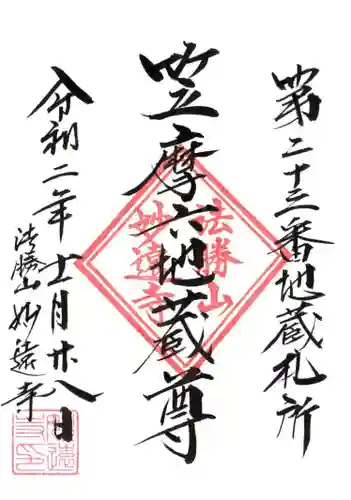 第二十三番地蔵札所
笠摩六地蔵尊
法勝山
妙遠寺
令和二年十一月廿八日
法勝山妙遠寺